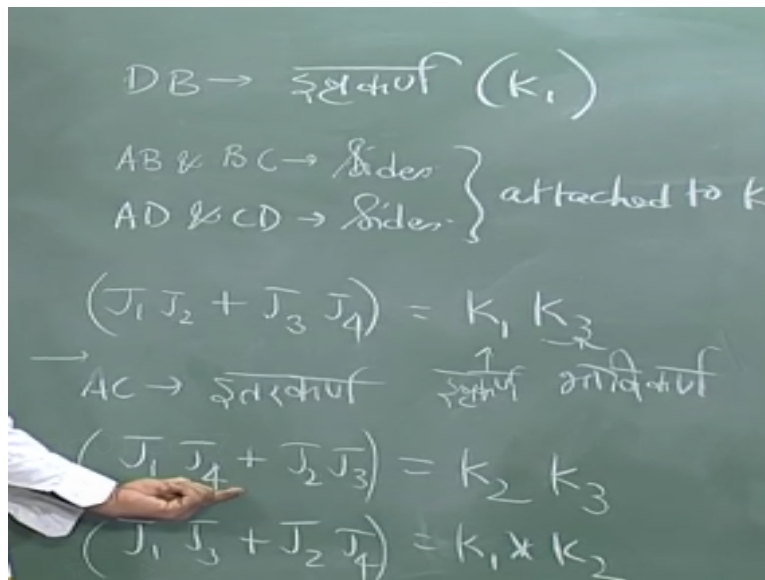 DB → इष्टकर्ण (K₁)
AB & BC → Sides
AD & CD → Sides
} attached to K
(J₁ J₂ + J₃ J₄) = K₁ K₃
↑
→ AC → इतरकर्ण इष्टकर्ण भाविकर्ण
(J₁ J₄ + J₂ J₃) = K₂ K₃
(J₁ J₃ + J₂ J₄) = K₁ * K₂